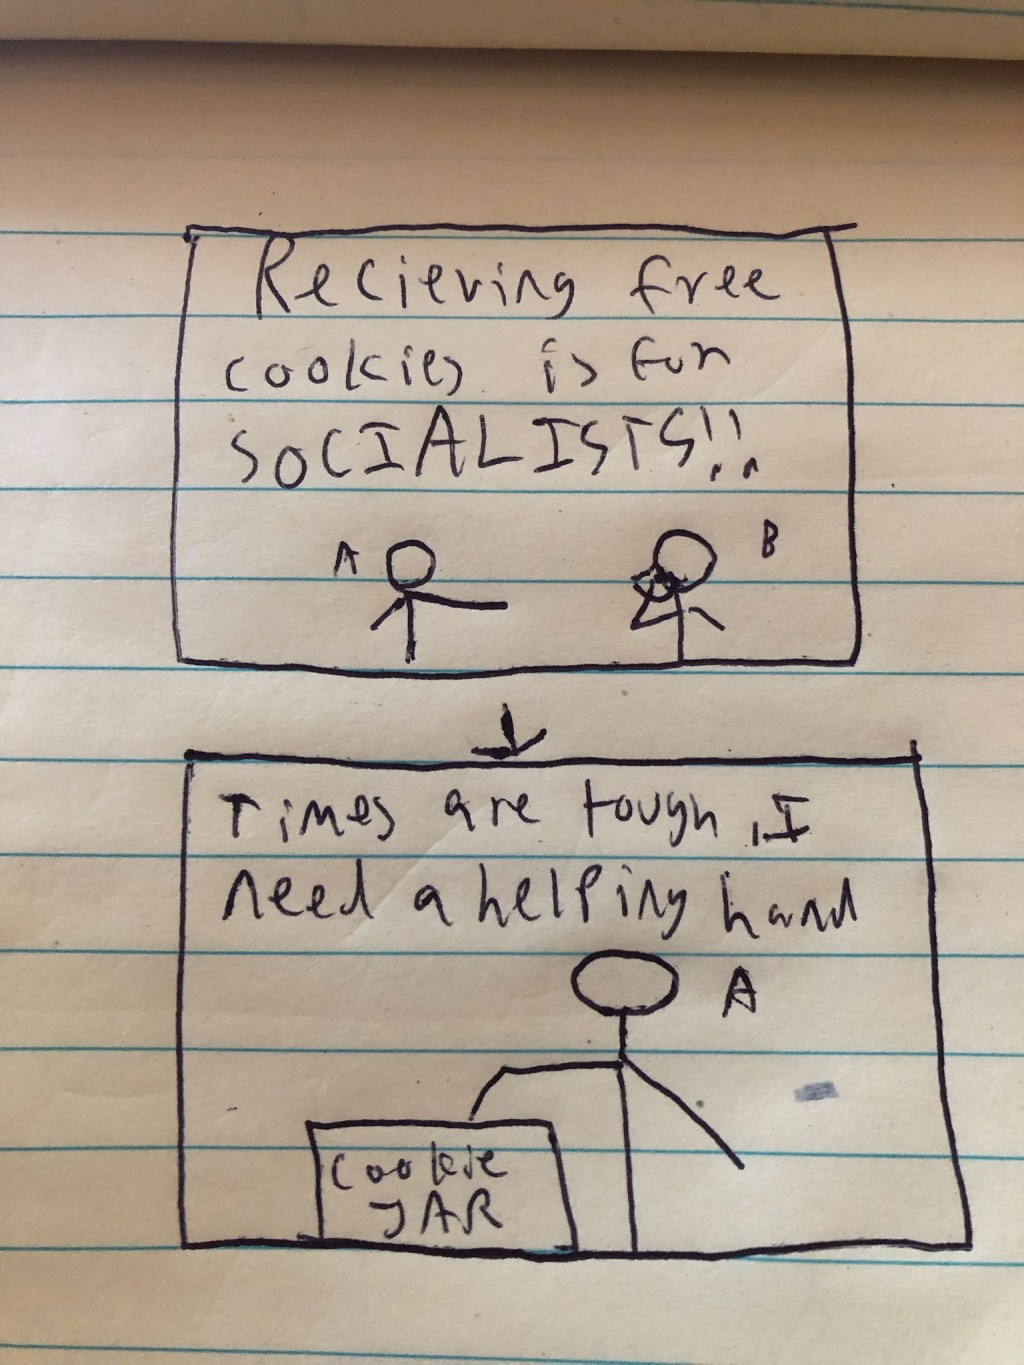 Recieving free
cookies is for
SOCIALISTS!!
A
B
Times are tough, I
need a helping hand
A
Cookie
JAR